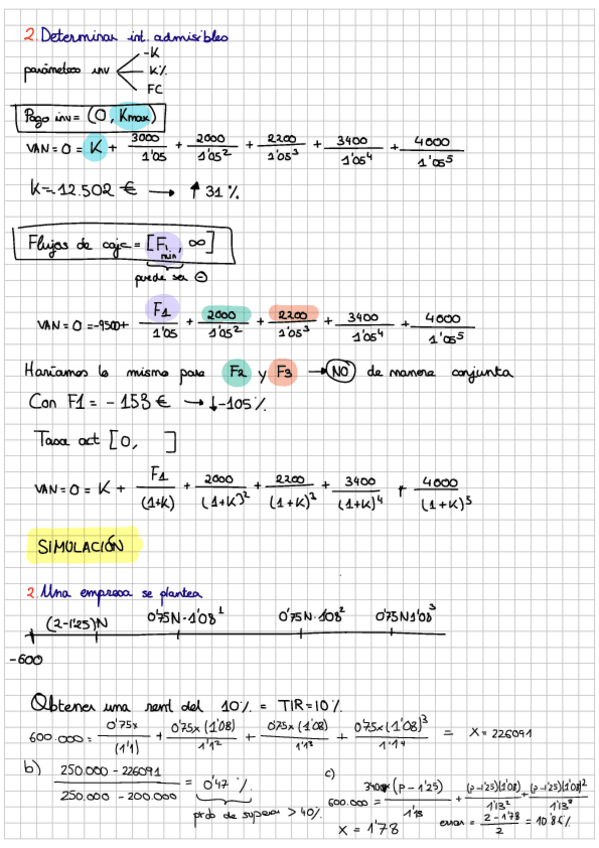 2. Determinar int. admisibles
parámetros inv
-K
K%
FC
Pago inv = (0, Kmax)
VAN = 0 = K + 3000/1'05 + 2000/1'05² + 2200/1'05³ + 3400/1'05⁴ + 4000/1'05⁵
K = -12.502 € → ↑ 31 %
Flujos de caja = [F1 min, ∞]
puede ser ⊖
VAN = 0 = -9500 + F1/1'05 + 2000/1'05² + 2200/1'05³ + 3400/1'05⁴ + 4000/1'05⁵
Haríamos lo mismo para F2 y F3 → NO de manera conjunta
Con F1 = - 153 € → ↓ -105 %
Tasa act [0, ]
VAN = 0 = K + F1/(1+K) + 2000/(1+K)² + 2200/(1+K)³ + 3400/(1+K)⁴ + 4000/(1+K)⁵
SIMULACIÓN
2. Una empresa se plantea
(2-1'25)N 0'75N·1'08¹ 0'75N·108² 0'75N1'08³
-600
Obtener una rent del 10% = TIR = 10%
600.000 = 0'75x/(1'1) + 0'75x(1'08)/1'1² + 0'75x(1'08)/1'1³ + 0'75x(1'08)³/1'1⁴ = x = 226091
b) 250.000 - 226091/250.000 - 200.000 = 0'47 %
prob de superar > 40%
c) 600.000 = (p - 1'25)/1'13 + (p-1'25)(1'08)/1'13² + (p-1'25)(1'08)²/1'13³
x = 1'78 error = 2-1'78/2 = 10'85%